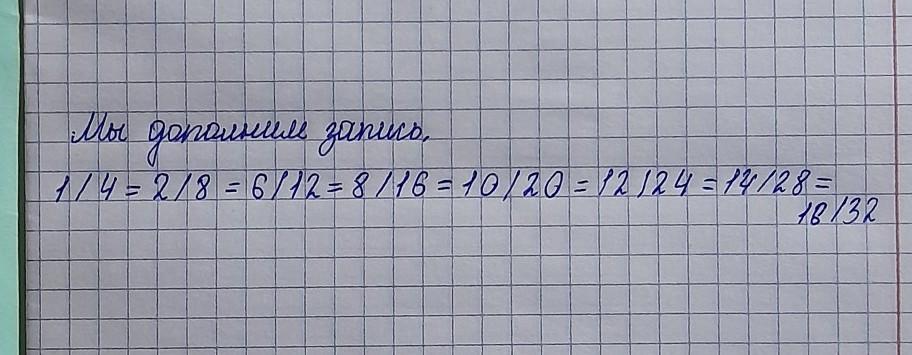 Мы дополним запись.
1/4 = 2/8 = 6/12 = 8/16 = 10/20 = 12/24 = 14/28 =
18/32